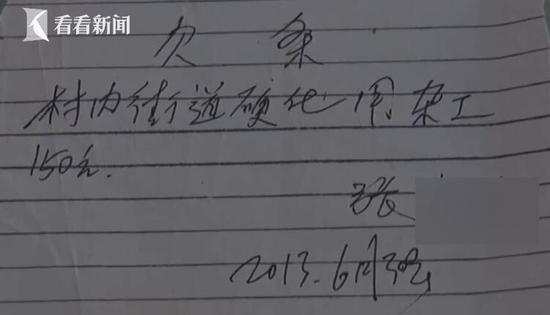 看看新闻
KNEWS
欠条
村内街道硬化用杂工
150元.
张
2013.6月30号